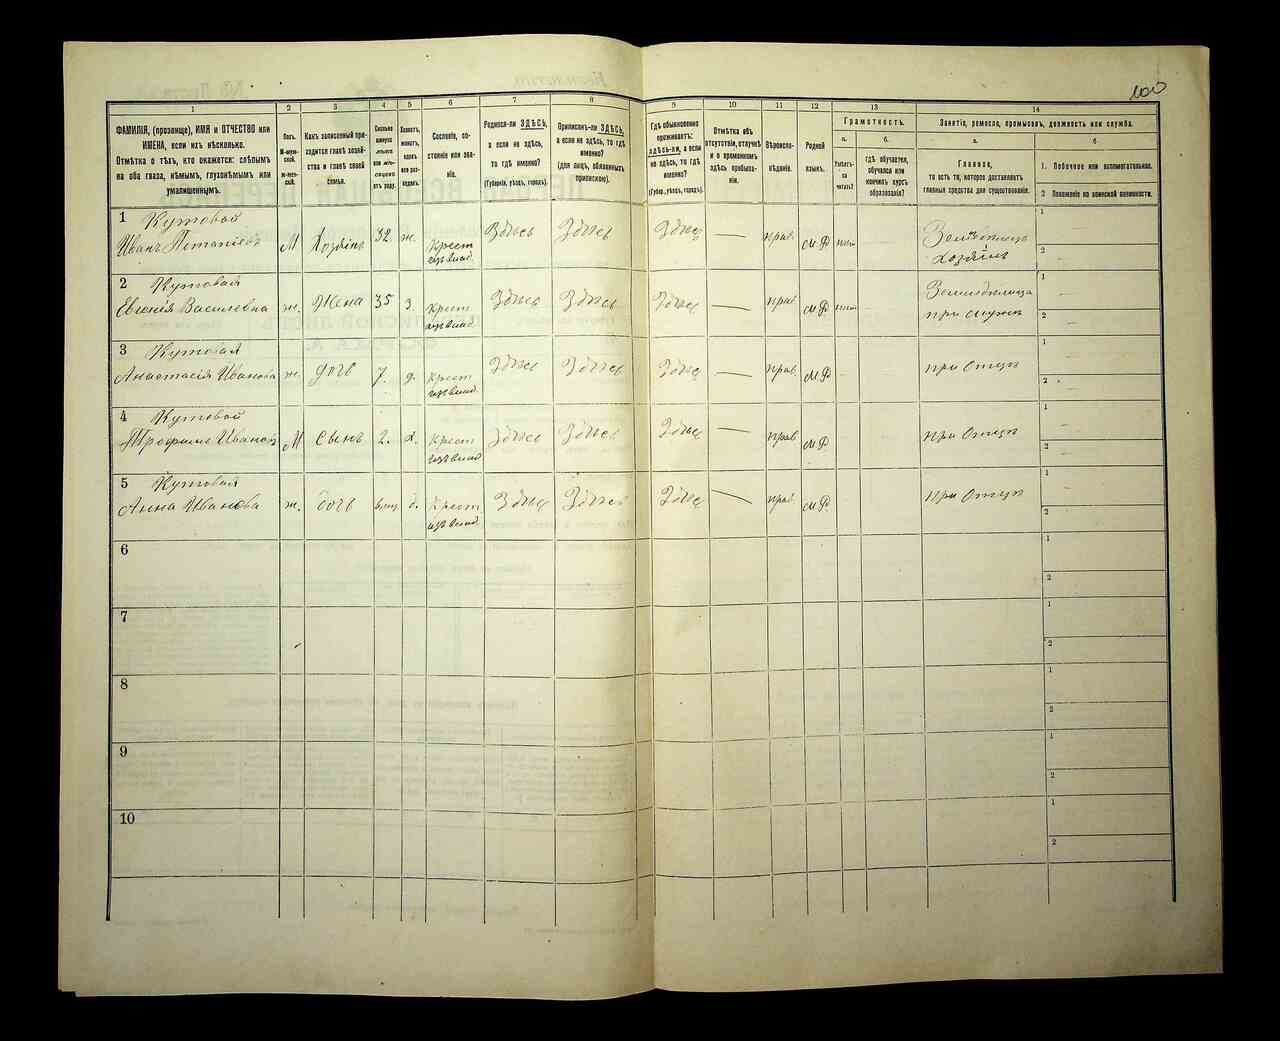 100
1 2 3 4 5 6 7 8 9 10 11 12 13 14
ФАМИЛІЯ, (прозвище), ИМЯ и ОТЧЕСТВО или
ИМЕНА, если ихъ нѣсколько.
Отмѣтка о тѣхъ, кто окажется: слѣпымъ
на оба глаза, нѣмымъ, глухонѣмымъ или
умалишеннымъ.
Полъ.
М-муж-
ской.
ж-жен-
скій.
Какъ записанный при-
ходится главѣ хозяй-
ства и главѣ своей
семьи.
Сколько
минуло
лѣтъ
или мѣ-
сяцевъ
отъ роду.
Холостъ,
женатъ,
вдовъ
или раз-
веденъ.
Сословіе, со-
стояніе или зва-
ніе.
Родился-ли ЗДѢСЬ,
а если не здѣсь,
то гдѣ именно?
(Губернія, уѣздъ, городъ).
Приписанъ-ли ЗДѢСЬ,
а если не здѣсь, то гдѣ
именно?
(для лицъ, обязанныхъ
припискою).
Гдѣ обыкновенно
проживаетъ:
здѣсь-ли, а если
не здѣсь, то гдѣ
именно?
(Губер., уѣздъ, городъ).
Отмѣтка объ
отсутствіи, отлучкѣ
и о временномъ
здѣсь пребыва-
ніи.
Вѣроиспо-
вѣданіе.
Родной
языкъ.
Грамотность.
а.
Умѣетъ-
ли
читать?
б.
гдѣ обучается,
обучался или
кончилъ курсъ
образованія?
Занятіе, ремесло, промыселъ, должность или служба.
а.
Главное,
то есть то, которое доставляетъ
главныя средства для существованія.
б
1. Побочное или вспомогательное.
2 Положеніе по воинской повинности.
1 Кутовой
Иванъ Потапіевъ М Хозяинъ 32. ж. Крест Здѣсь Здѣсь Здѣсь — прав. М.Р нѣт Земледѣлецъ
изъ влад. хозяинъ
1
2
2 Кутовая
Евгенія Василевна ж. Жена 35 з. Крест Здѣсь Здѣсь Здѣсь — прав М.Р нѣт Земледѣлица
изъ влад. при мужѣ
1
2
3 Кутовая
Анастасія Иванова ж. дочь 7. д. Крест Здѣсь Здѣсь Здѣсь — прав. М.Р при Отцѣ
изъ влад.
1
2
4 Кутовой
Трофимъ Иванов М сынъ 2. х. Крест Здѣсь Здѣсь Здѣсь — прав М.Р при Отцѣ
изъ влад
1
2
5 Кутовая
Анна Иванова ж. дочь д. Крест Здѣсь Здѣсь Здѣсь — прав. М.Р. при Отцѣ
изъ влад.
1
2
6
1
2
7
1
2
8
1
2
9
1
2
10
1
2